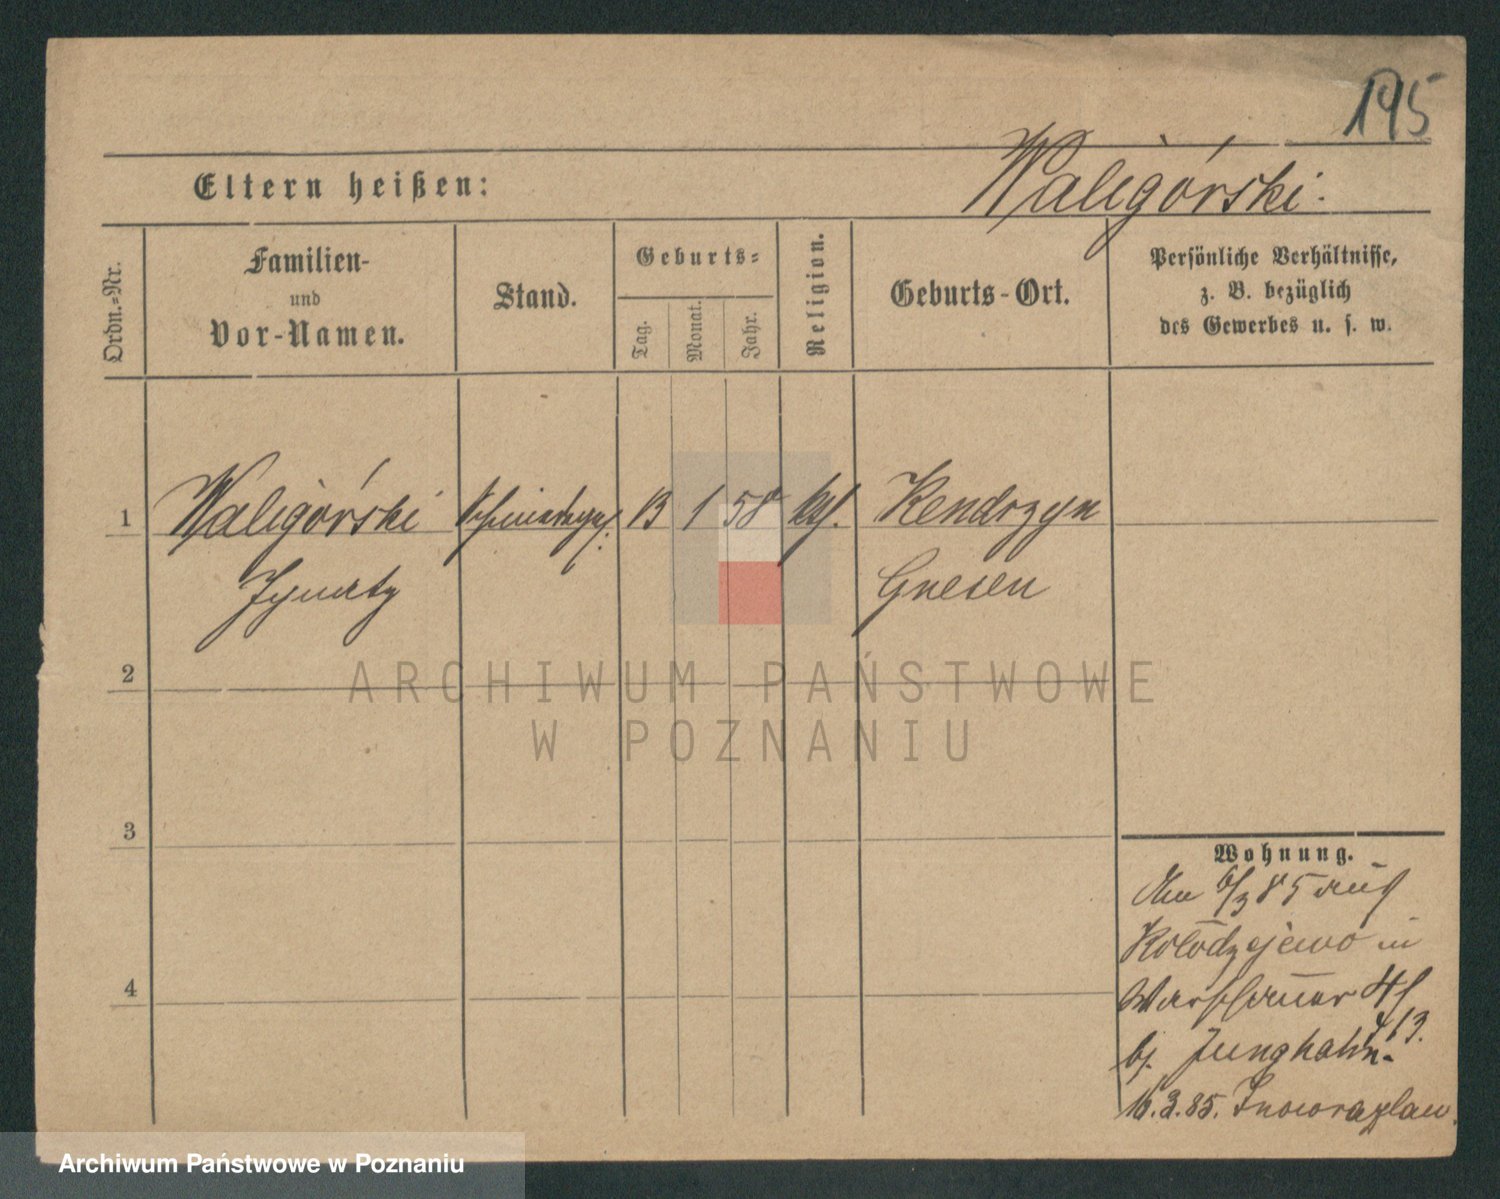 195
Eltern heißen:
Waligórski.
Ordn.=Nr.
Familien-
und
Vor-Namen.
Stand.
Geburts=
Tag.
Monat.
Jahr.
Religion.
Geburts-Ort.
Persönliche Verhältnisse,
z. B. bezüglich
des Gewerbes u. s. w.
1 Waligórski 13 1 58 kth. Kendrzyn
Ignatz Gnesen
2
3
4
Wohnung.
6/3 85 aus
Kolodzejewo in
Warschauer
4/13.
bj. Junghahn.
16.3.85. Inowrazlaw.
ARCHIWUM PAŃSTWOWE
W POZNANIU
Archiwum Państwowe w Poznaniu